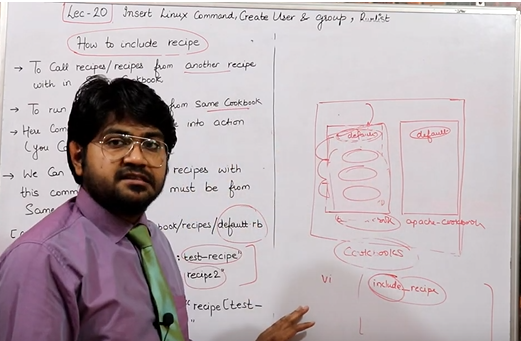 Lec-20 Insert Linux Command, Create User & group, Runlist
How to include recipe
→ To Call recipes/recipes from another recipe
with in Cookbook
→ To run from Same Cookbook
→ Here into action
(you Ca
→ We Can recipes with
this comm must be from
Same
book/recipes/default.rb
: test-recipe"
recipe2"
recipe[test-
default
default
apache-cookbook
Cookbooks
vi
include_recipe